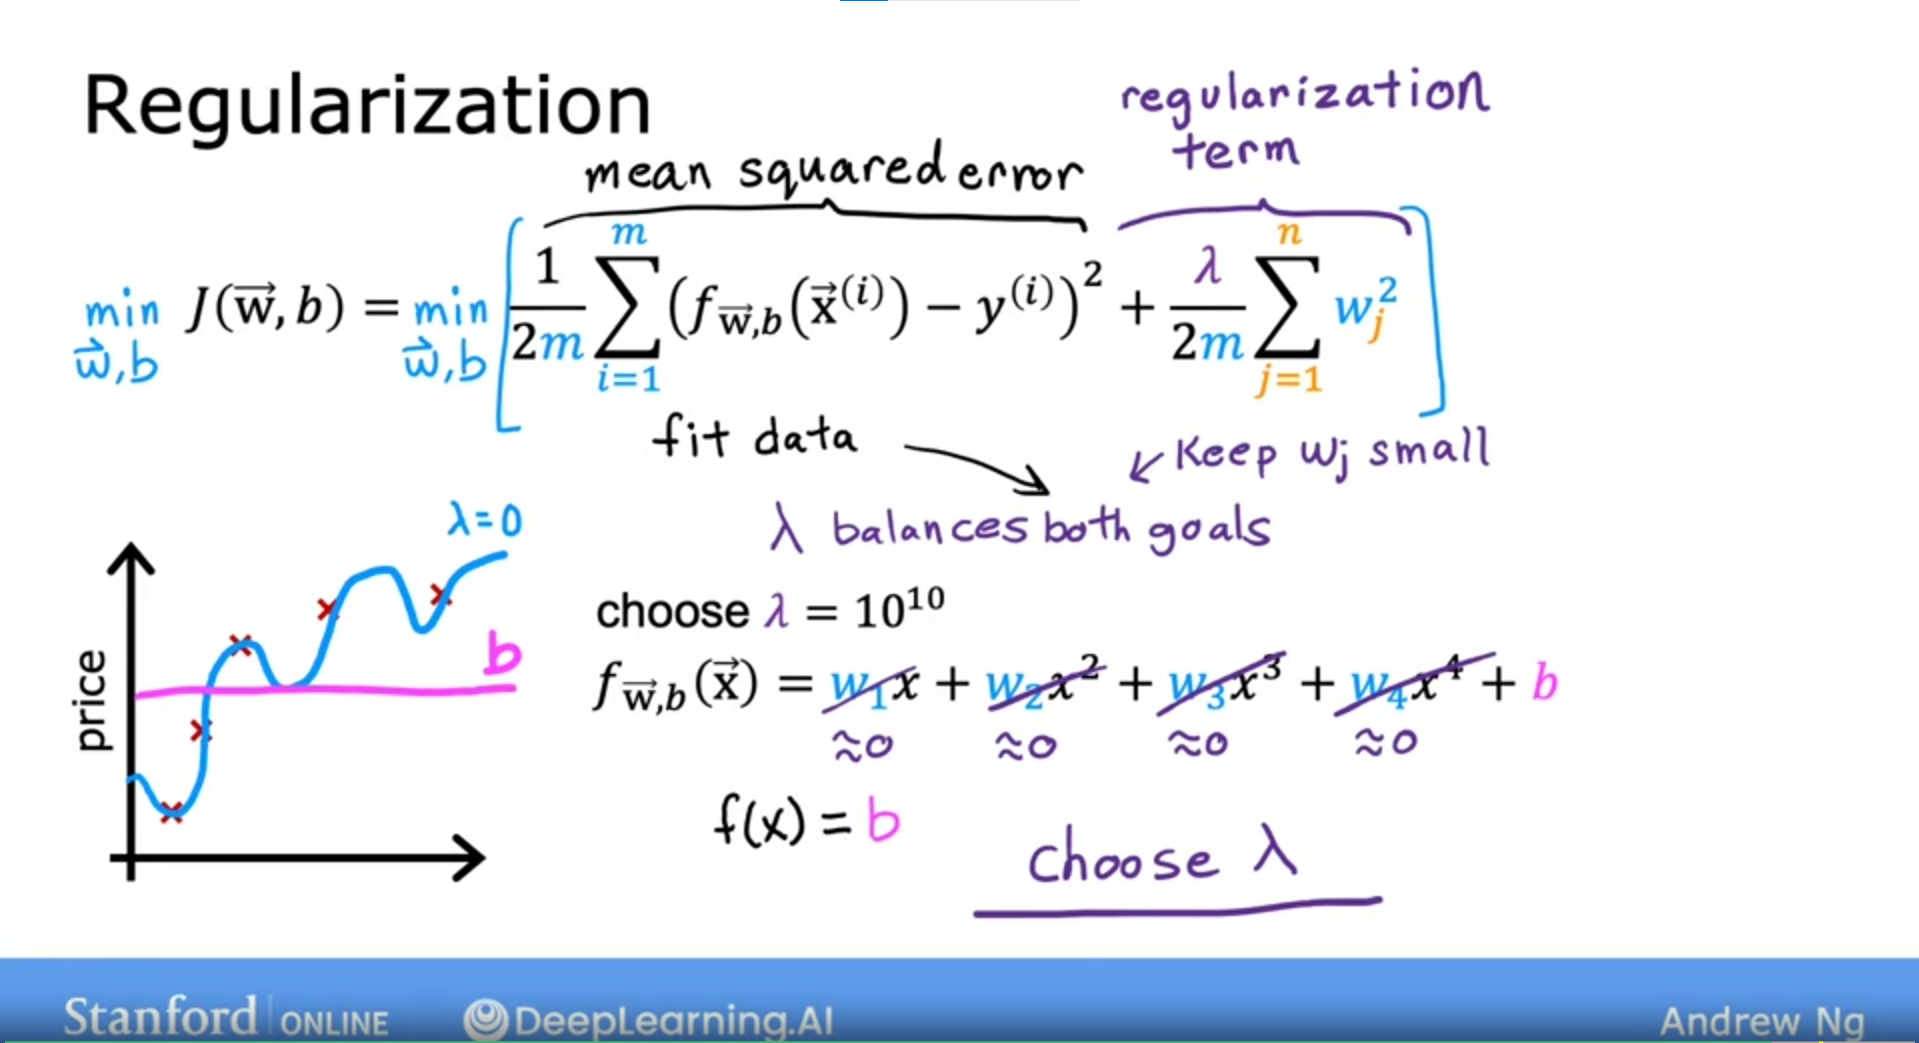 Regularization
regularization
term
mean squared error
min w⃗,b J(w⃗, b) = min w⃗,b [ 1/2m ∑ᵢ₌₁ᵐ (f w⃗,b(x⃗⁽ⁱ⁾) − y⁽ⁱ⁾)² + λ/2m ∑ⱼ₌₁ⁿ wⱼ² ]
fit data
Keep wj small
λ balances both goals
λ=0
choose λ = 10¹⁰
b
f w⃗,b(x⃗) = w₁x + w₂x² + w₃x³ + w₄x⁴ + b
≈0 ≈0 ≈0 ≈0
price
f(x) = b
choose λ
Stanford ONLINE DeepLearning.AI Andrew Ng